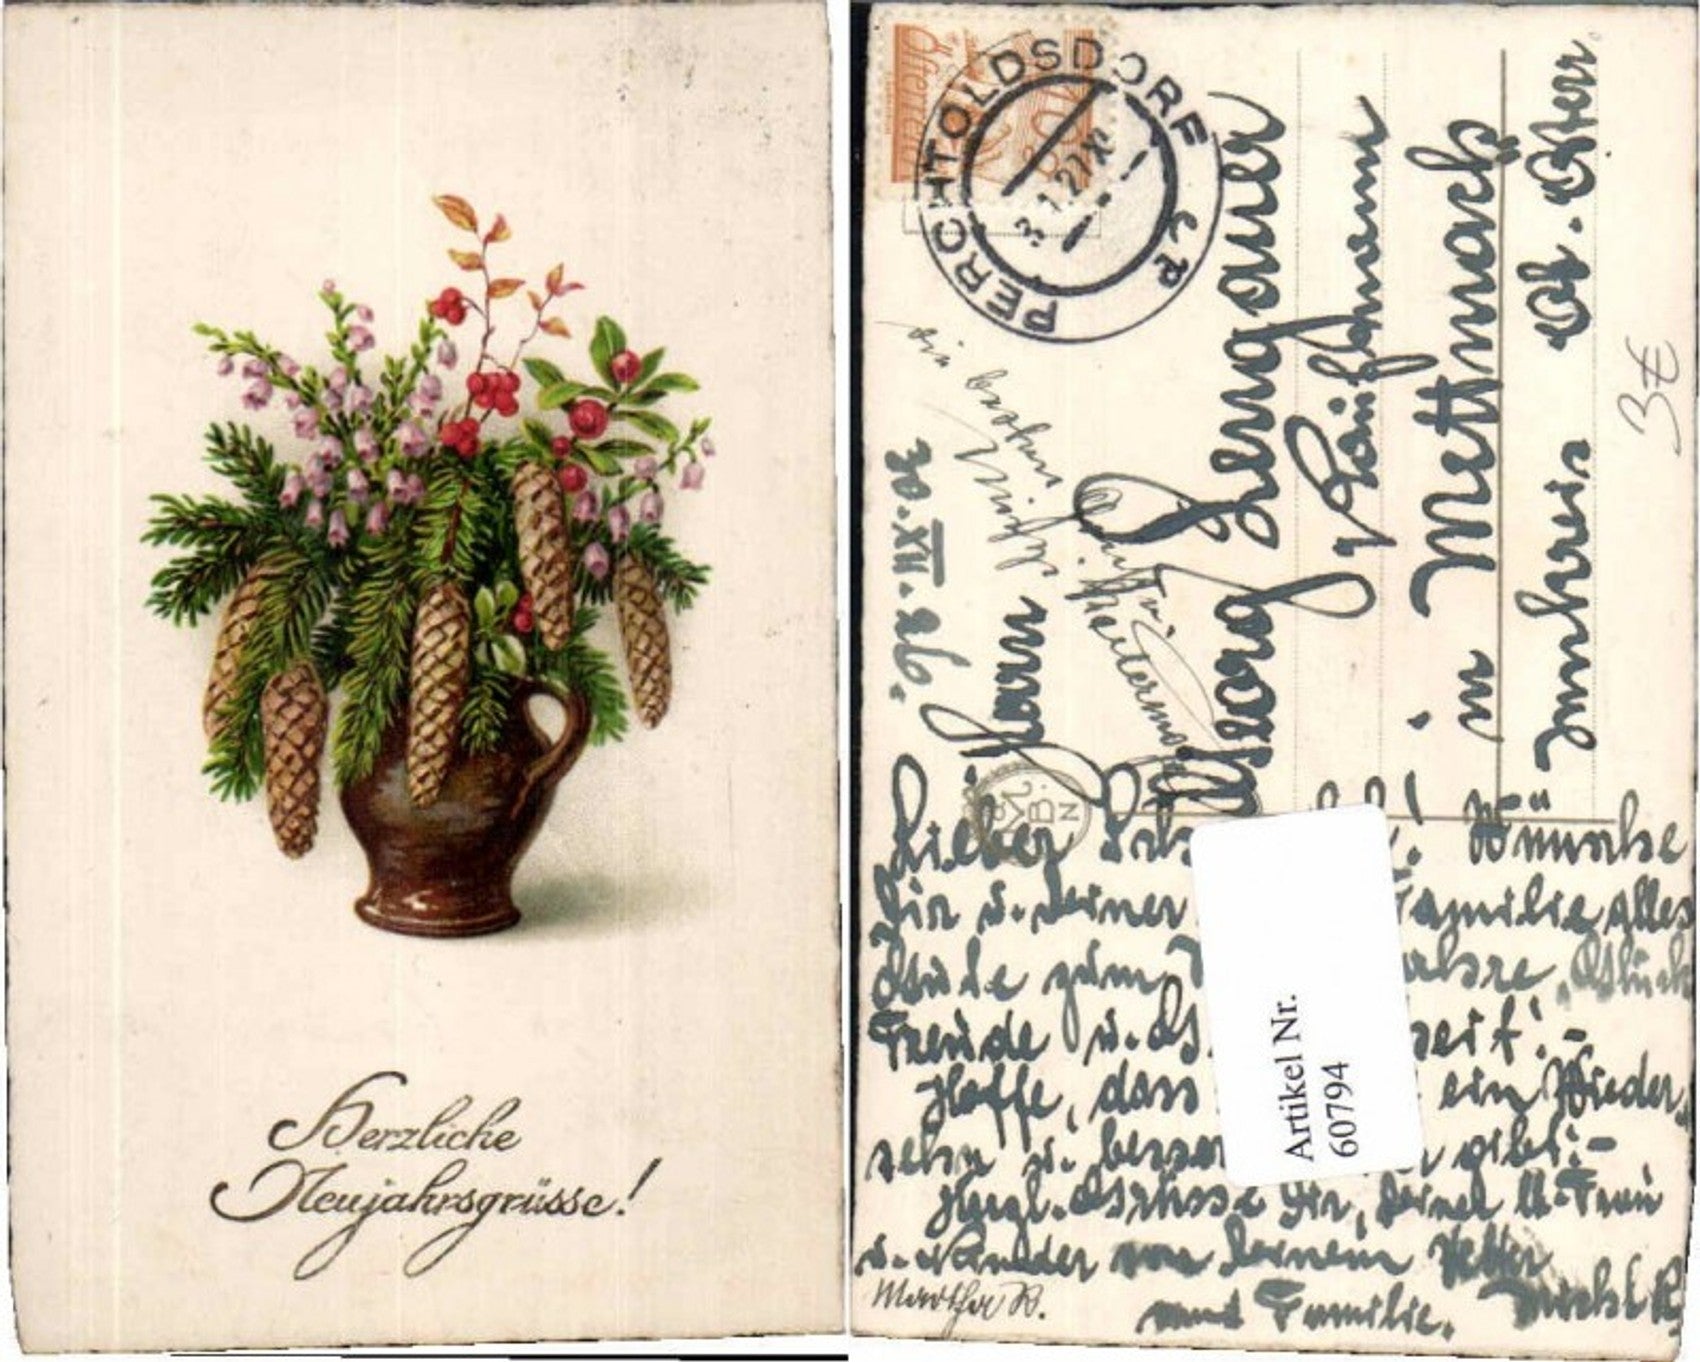 Herzliche
Neujahrsgrüsse!
PERCHTOLDSDORF
3.1.27.X
10
30.XII.26.
Herrn
Georg Zwengauer
Kaufmann
in Mettmach
Innkreis Ob. Österr.
3€
B.
N
Lieber ! Wünsche
Dir u. Deiner Familie alles
Gute zum Jahre, Glück
Freude u. G
Hoffe, dass ein Wieder
sehn u. besser gibt!-
Herzl. Grüsse Dir, Deiner lb. Frau
u. Kinder von Deinem Vetter
und Familie.
Martha R.
Artikel Nr.
60794